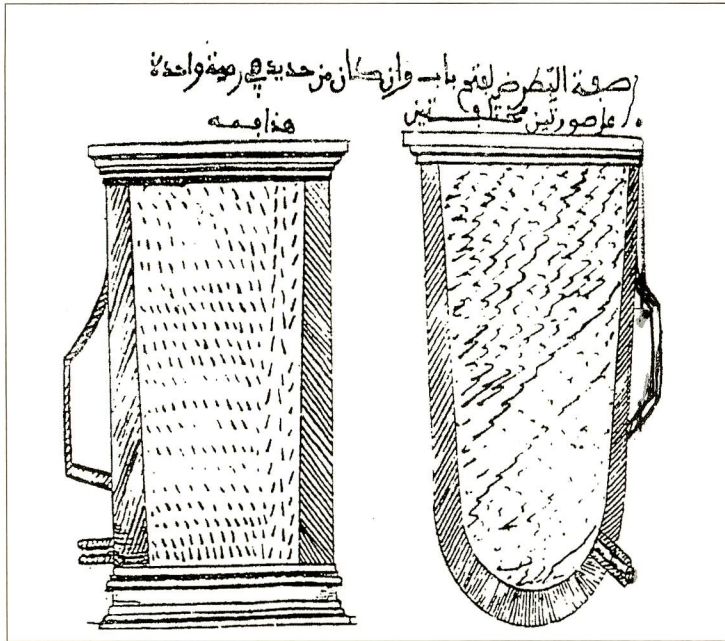 صفة البطرض لفتح باب وان كان من حديد في رمية واحدة
على صورتين مختلفتين
هذا فمه